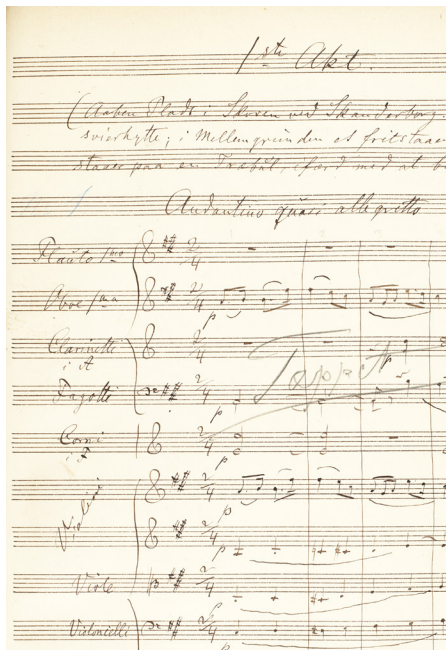 1ste Akt.
(Aaben Plads i Skoven ved Skanderborg.
svierhytte; i Mellemgrunden et fritstaae
staaer paa en Træbul, ifærd med at
Andantino quasi allegretto
Flauto 1mo
2/4
Oboe 1ma
2/4
p
Clarinetti
i A
2/4
Tæppet p
Fagotti
2/4
p
Corni
i F
2/4
p
Violini
2/4
p
2/4
p
Viole
2/4
p
Violoncelli
2/4
p